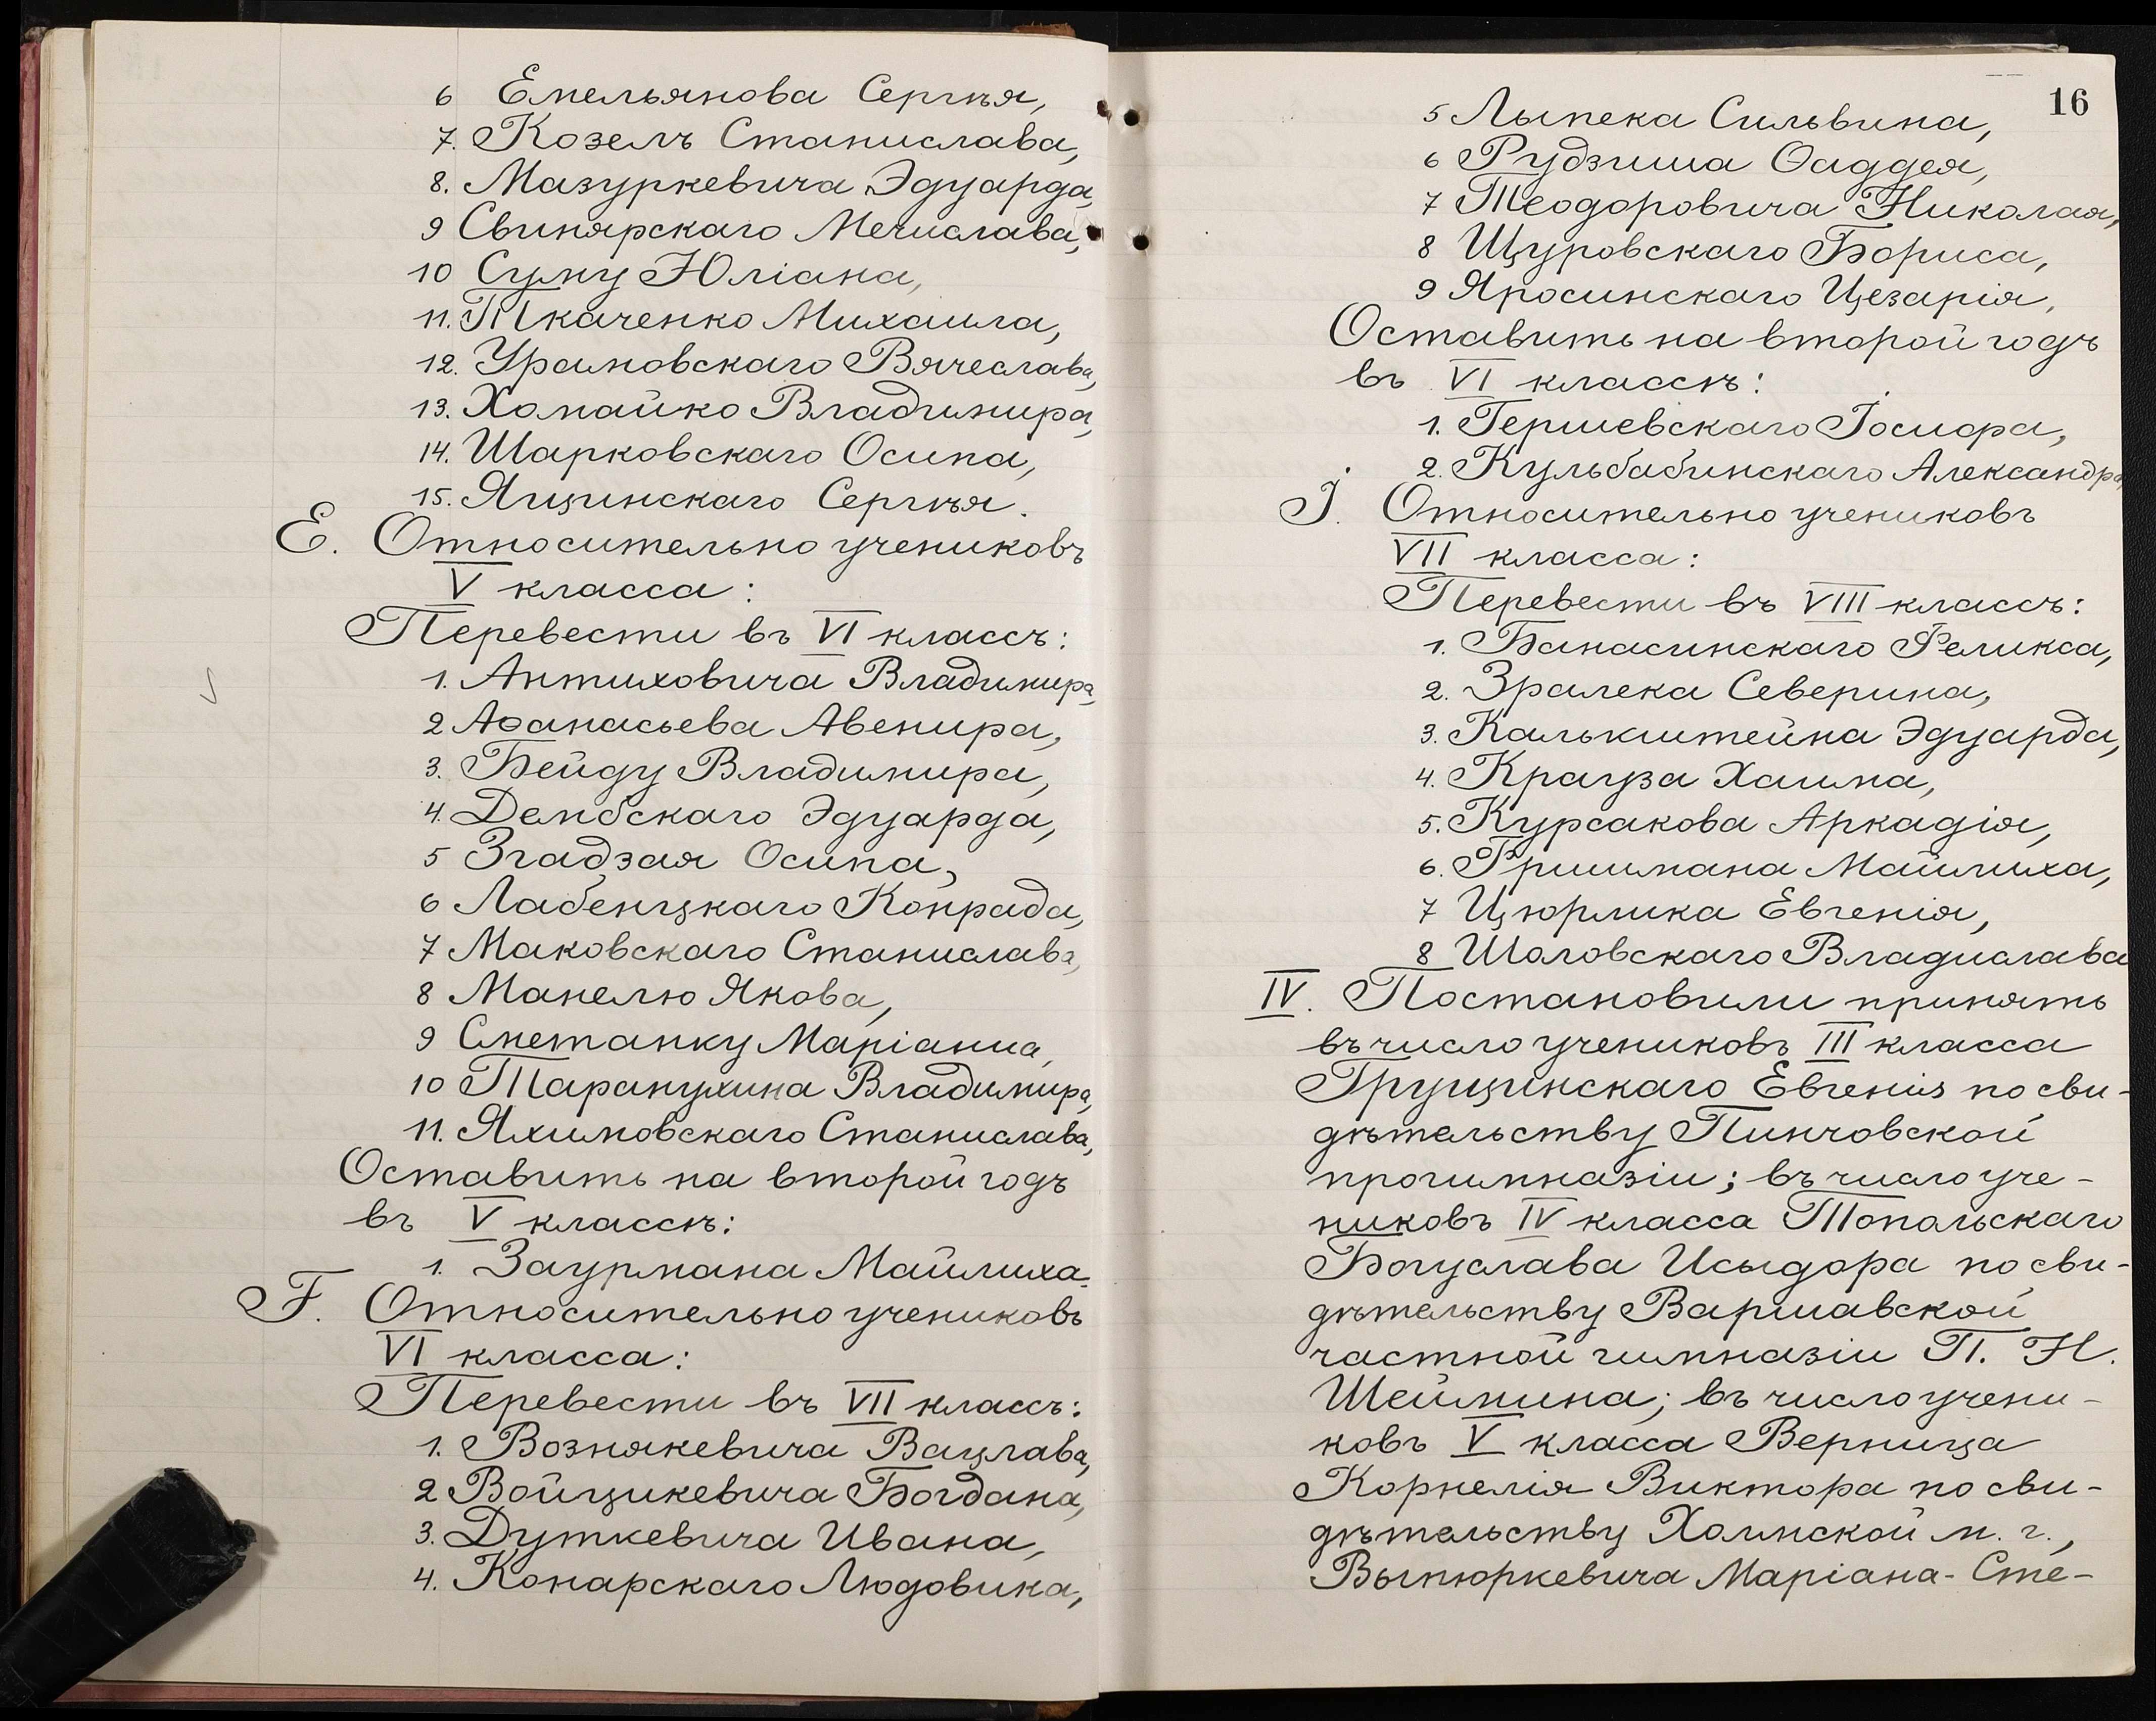 6 Емельянова Сергѣя,
7. Козелъ Станислава,
8. Мазуркевича Эдуарда,
9 Свинярскаго Мечислава,
10 Суму Юліана,
11. Ткаченко Михаила,
12. Урамовскаго Вячеслава,
13. Хомайко Владимира,
14. Шарковскаго Осипа,
15. Ящинскаго Сергѣя.
Е. Относительно учениковъ
V класса:
Перевести въ VI классъ:
1. Антиховича Владимира,
2 Аѳанасьева Авенира,
3. Бейду Владимира,
4. Дембскаго Эдуарда,
5 Згадзая Осипа,
6 Лабенцкаго Конрада,
7 Маковскаго Станислава,
8 Манелю Якова,
9 Сметанку Маріанна,
10 Таранухина Владимира,
11. Яхимовскаго Станислава,
Оставить на второй годъ
въ V классѣ:
1. Заурмана Майлиха.
F. Относительно учениковъ
VI класса:
Перевести въ VII классъ:
1. Вознякевича Вацлава,
2 Войцикевича Богдана,
3. Дуткевича Ивана,
4. Конарскаго Людовика,
16
5 Лыпека Сильвина,
6 Рудзиша Ѳаддея,
7 Теодоровича Николая,
8 Щуровскаго Бориса,
9 Яросинскаго Цезарія,
Оставить на второй годъ
въ VI классѣ:
1. Гершевскаго Іосифа,
2. Кульбабинскаго Александра,
J. Относительно учениковъ
VII класса:
Перевести въ VIII классъ:
1. Банасинскаго Феликса,
2. Зралека Северина,
3. Калькштейна Эдуарда,
4. Крауза Хаима,
5. Курсакова Аркадія,
6. Фришмана Майлиха,
7 Цюрлика Евгенія,
8 Шоловскаго Владислава
IV. Постановили принять
въ число учениковъ III класса
Грущинскаго Евгенія по сви-
дѣтельству Пинчовской
прогимназіи; въ число уче-
никовъ IV класса Топольскаго
Богуслава Исыдора по сви-
дѣтельству Варшавской
частной гимназіи П. Н.
Шеймина; въ число учени-
ковъ V класса Верница
Корнелія Виктора по сви-
дѣтельству Холмской м. г.,
Выпюркевича Маріана-Сте-